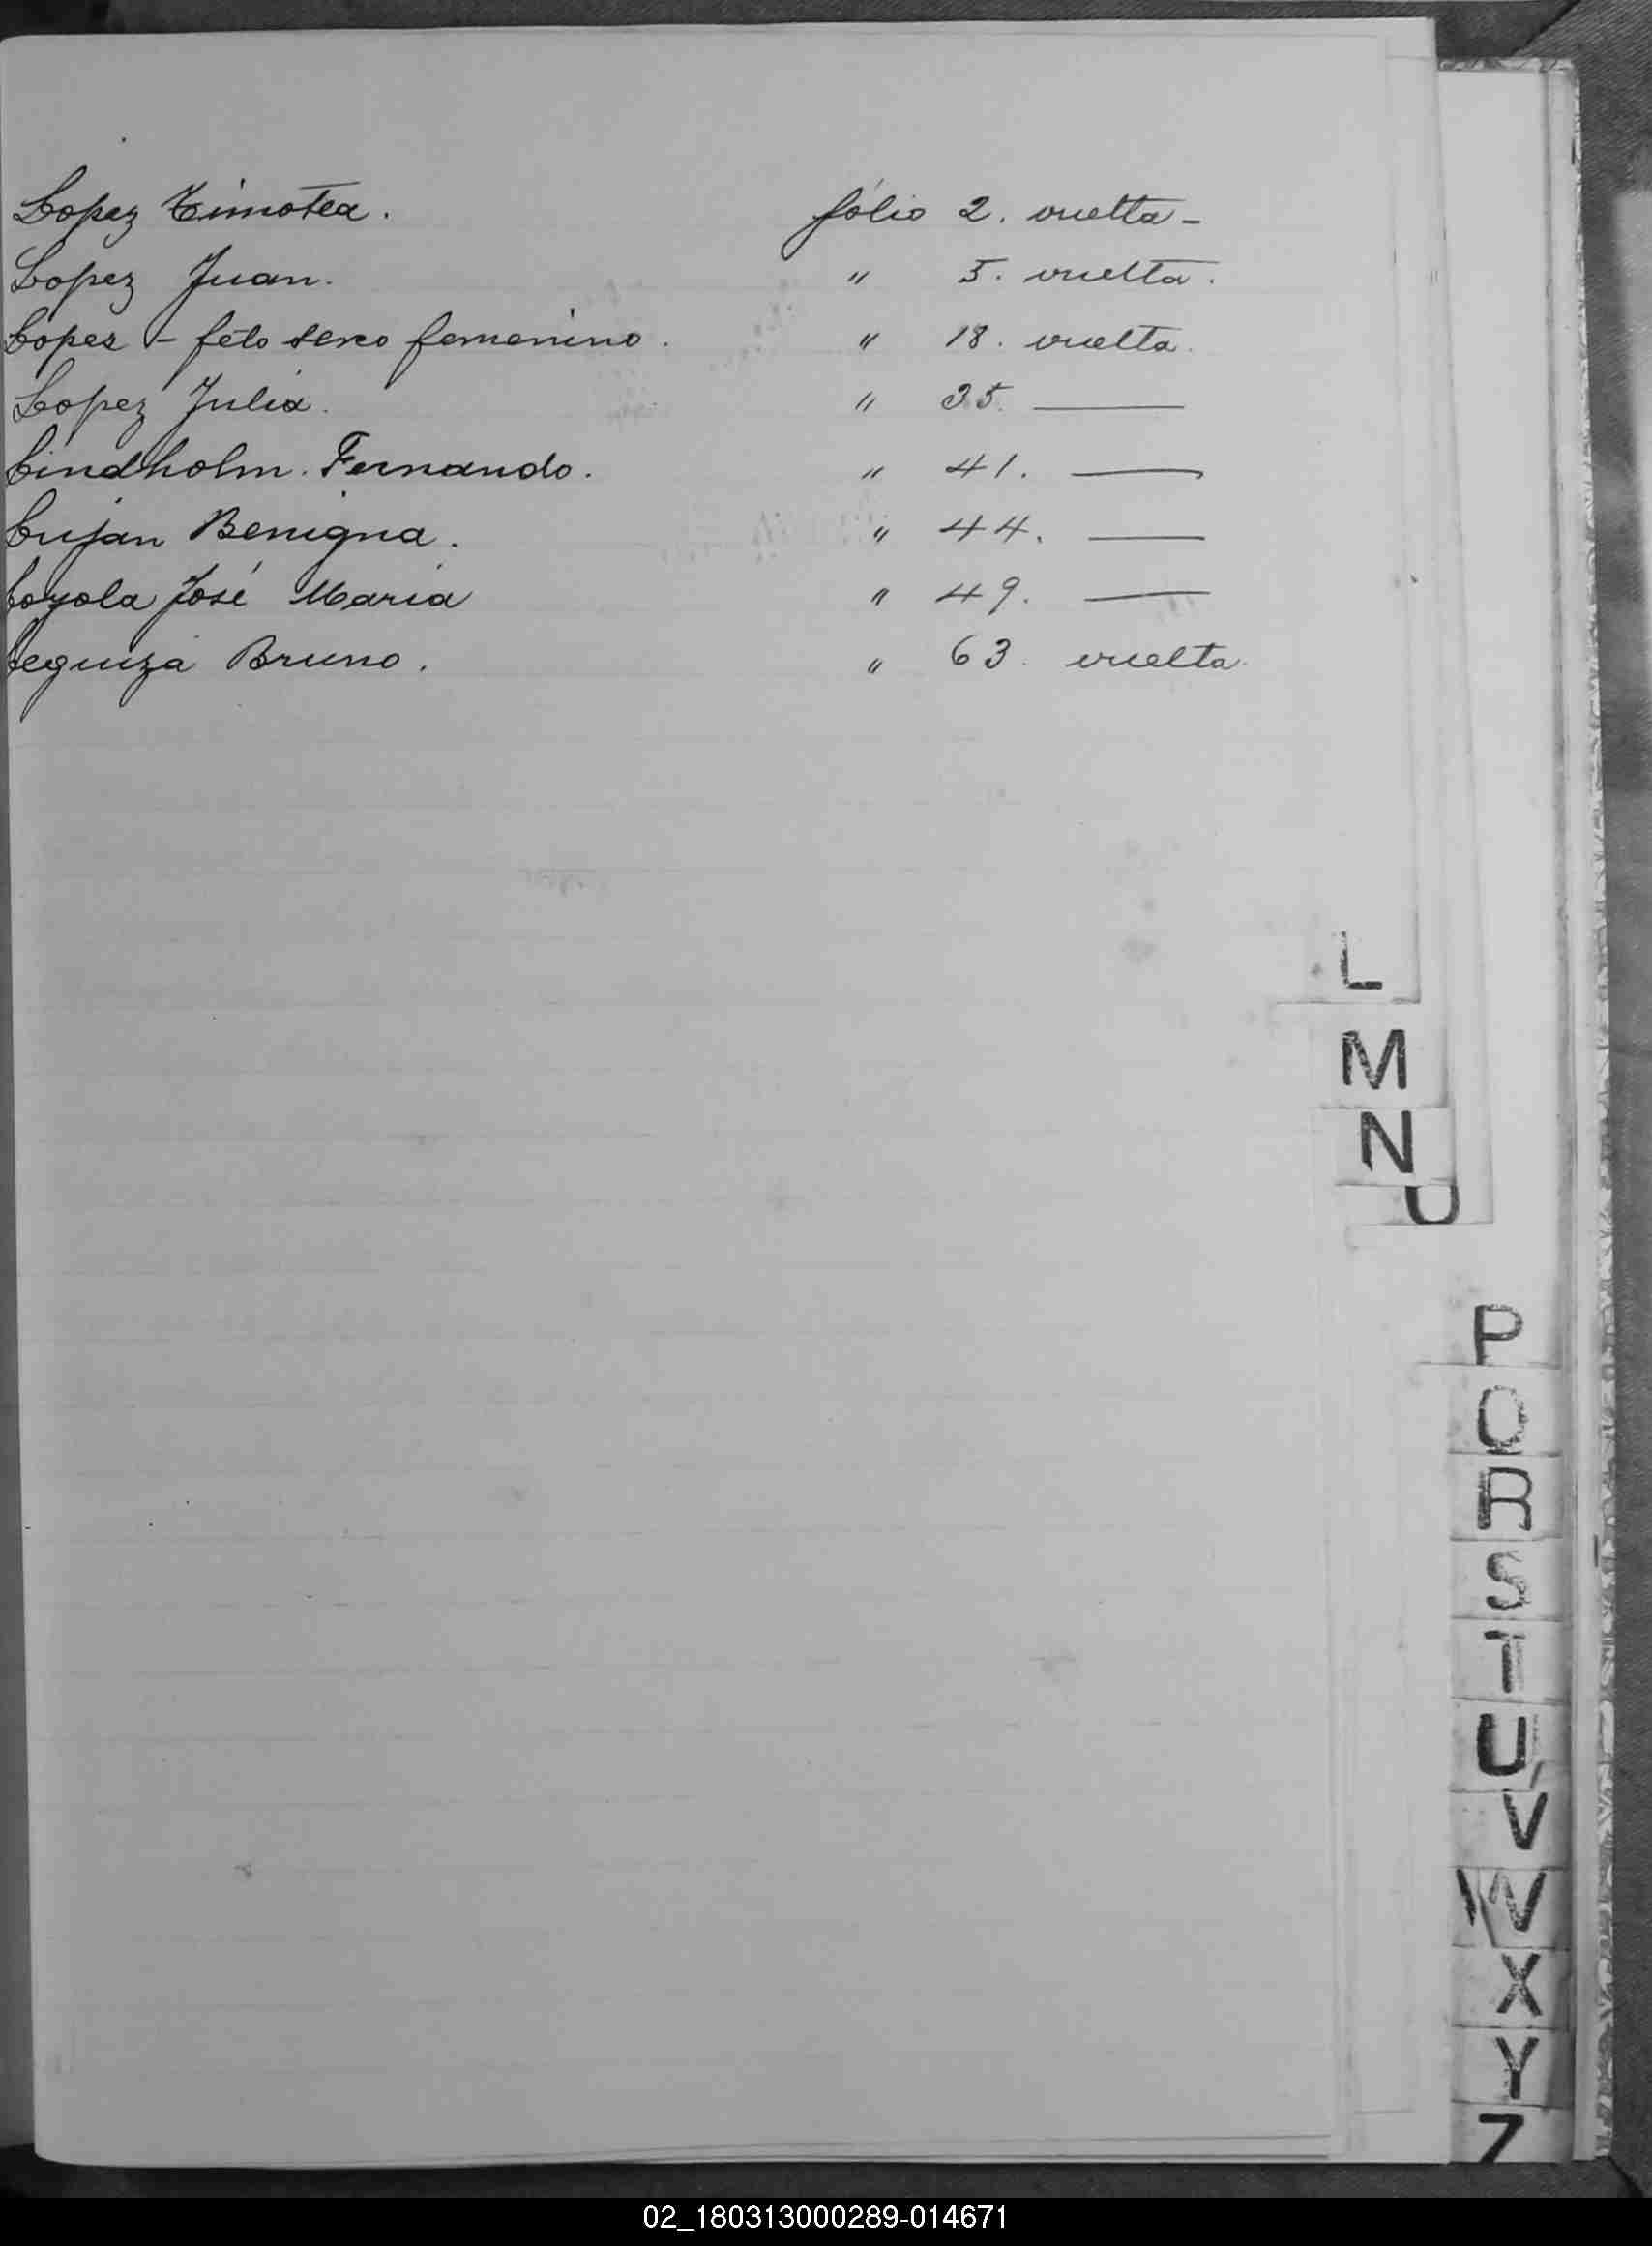 Lopez Timotea. fólio 2. vuelta -
Lopez Juan. " 5. vuelta.
Lopez - feto sexo femenino. " 18. vuelta.
Lopez Julia. " 35. —
Lindholm. Fernando. " 41. —
Lujan Benigna. " 44. —
Loyola José Maria " 49. —
Leguiza Bruno. " 63. vuelta.
L
M
N
O
P
Q
R
S
T
U
V
W
X
Y
Z
02_180313000289-014671